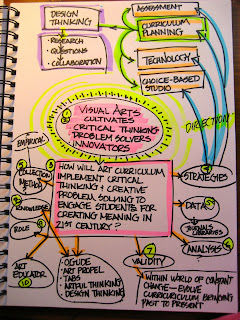 DESIGN
THINKING
• RESEARCH
• QUESTIONS
• COLLABORATION
ASSESSMENT
CURRICULUM
PLANNING
TECHNOLOGY
CHOICE-BASED
STUDIO
DIRECTION
VISUAL ARTS
CULTIVATES
CRITICAL THINKING
PROBLEM SOLVERS
INNOVATORS
EMPIRICAL
COLLECTION
METHOD
KNOWLEDGE
ROLE
ART
EDUCATOR
HOW WILL ART CURRICULUM
IMPLEMENT CRITICAL
THINKING & CREATIVE
PROBLEM SOLVING TO
ENGAGE STUDENTS FOR
CREATING MEANING IN
21ST CENTURY?
STRATEGIES
DATA
JOURNALS
LIBRARIES
ANALYSIS
VALIDITY
• OGUDE
• ART PROPEL
• TABS
• ARTFUL THINKING
• DESIGN THINKING
WITHIN WORLD OF CONSTANT
CHANGE - EVOLVE
PAST TO PRESENT